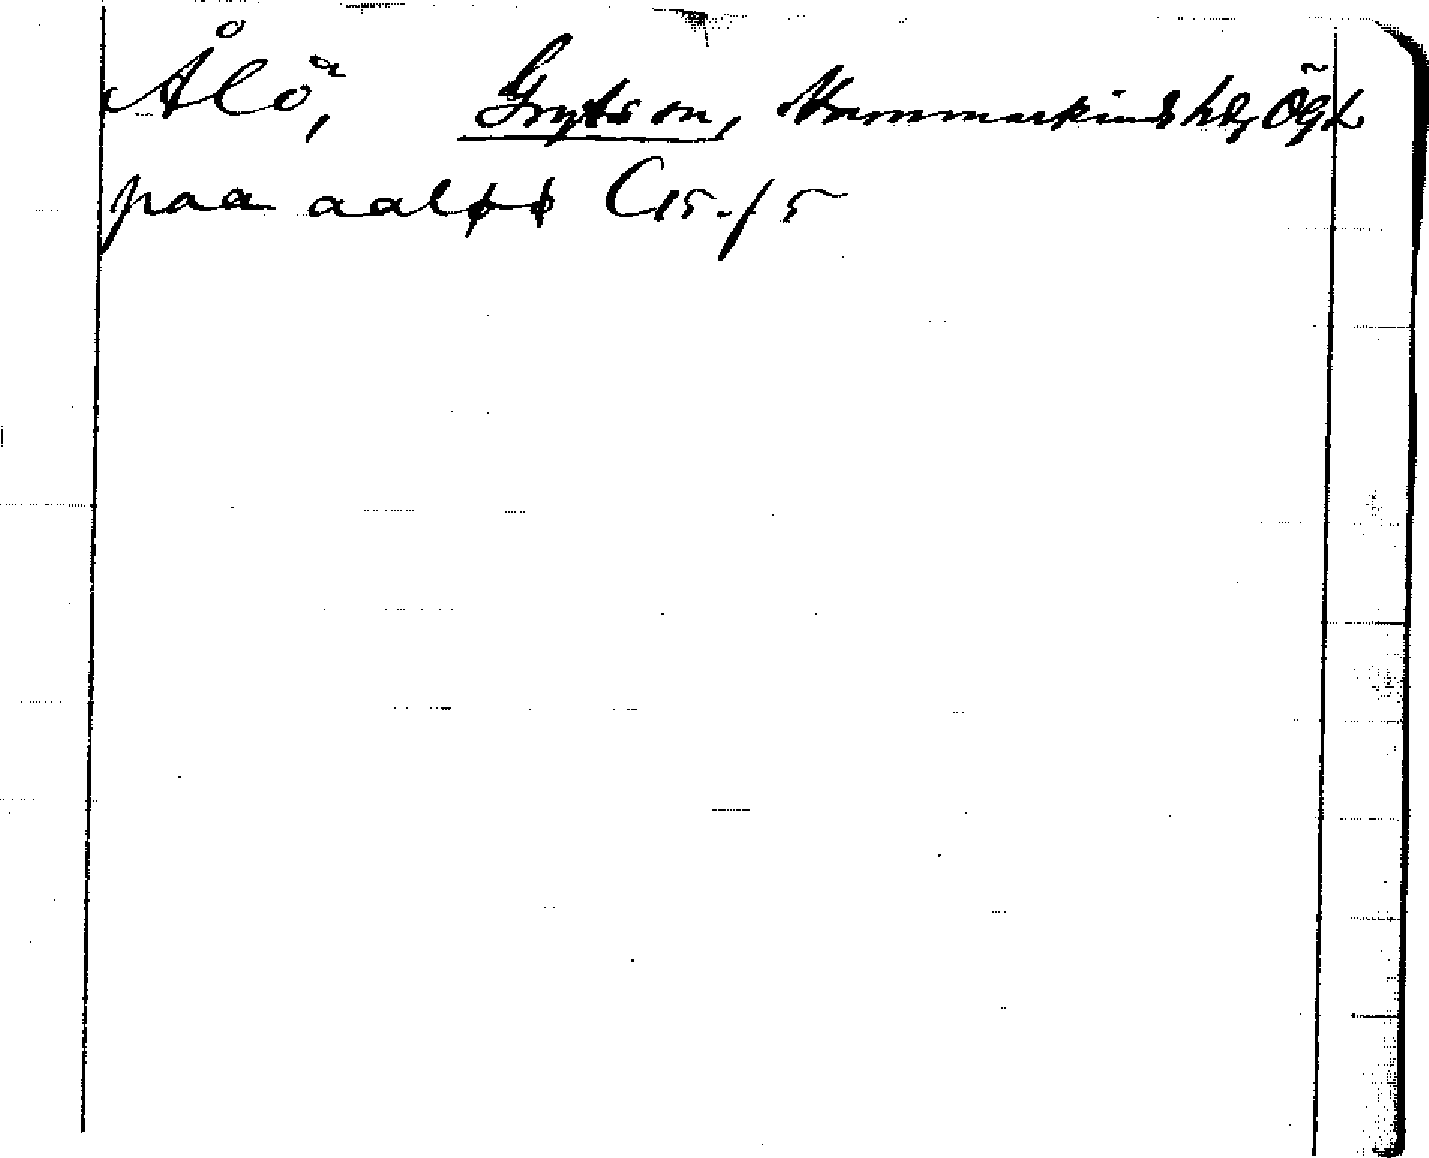 Ålö, Gryts sn, Hammarkinds hd, Ögl
paa aaløø C 15./5